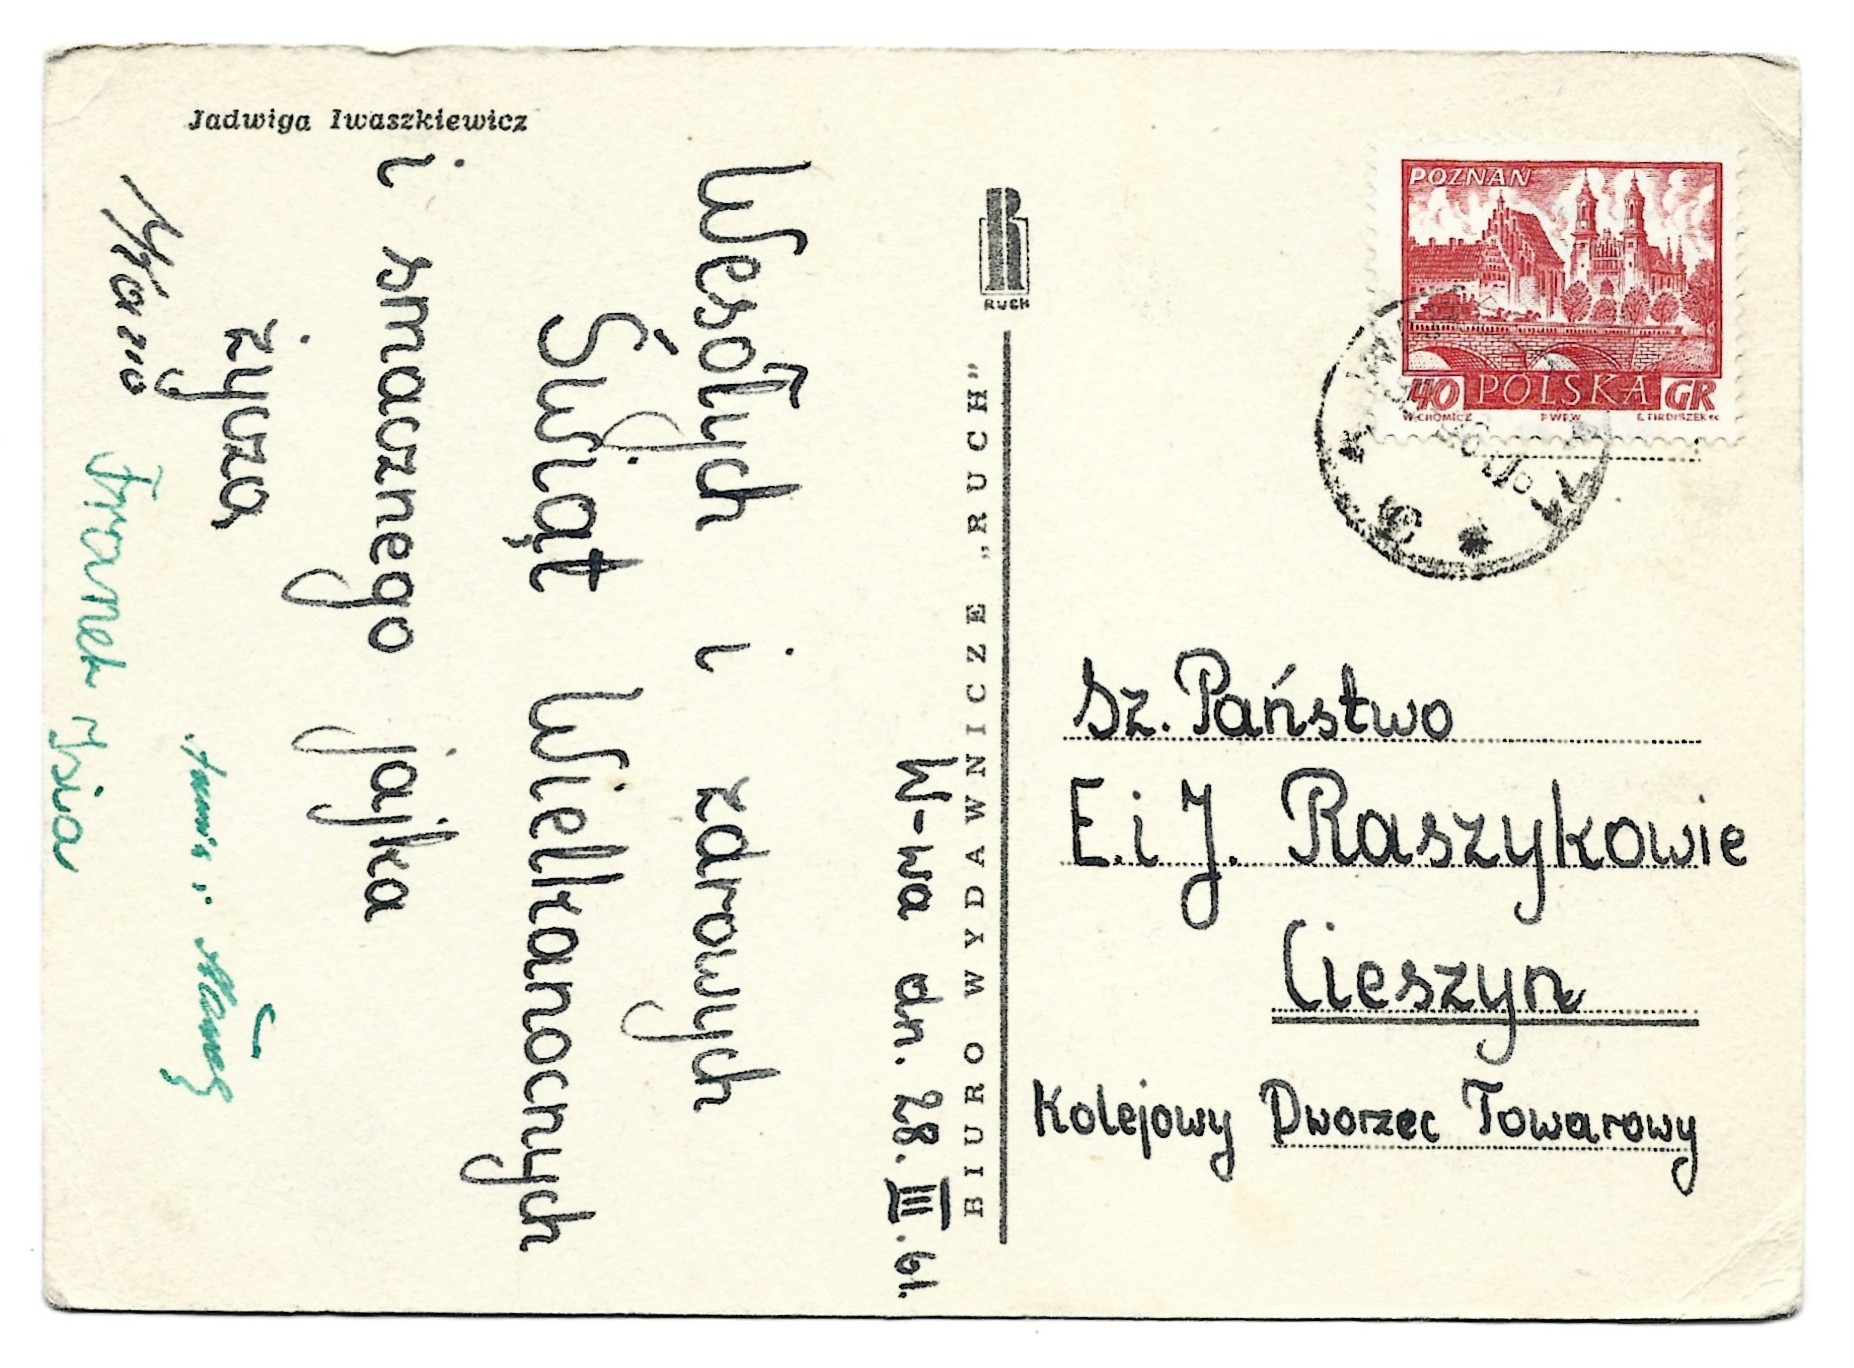 Jadwiga Iwaszkiewicz
W-wa dn. 28.III.61.
Wesołych i zdrowych
Świąt Wielkanocnych
i smacznego jajka
życzą
Franek
RUCH
BIURO WYDAWNICZE „RUCH”
POZNAŃ
40 POLSKA GR
W. CHOMICZ P.W.P.W.
Sz. Państwo
E. i J. Raszykowie
Cieszyn
Kolejowy Dworzec Towarowy